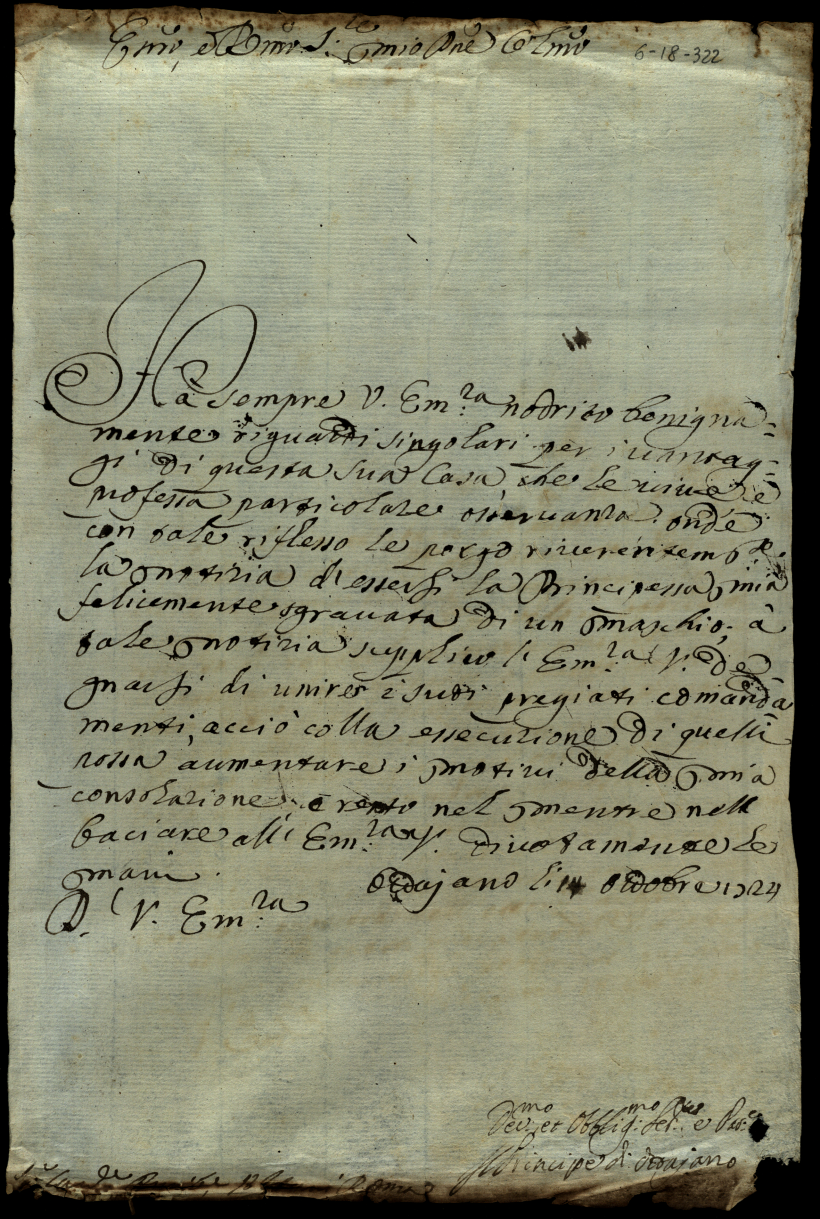 Emo, e Rmo Sig.re mio Pne Colmo 6-18-322
Hà sempre V. Em.ra nodrito benigna=
mente riguardi singolari per i vantag=
gi di questa sua Casa che le vive, e
professa particolare osservanza: onde
con tale riflesso le porgo riverentem.te
la notizia di essersi la Principessa mia
felicemente sgravata di un maschio; à
tale notizia supplico l' Em.ra V. de=
gnarsi di unire i suoi pregiati comanda
menti, acciò colla essecuzione di quelli
possa aumentare i motivi della mia
consolazione; e resto nel mentre nell
baciare all' Em.ra V. divotamente le
mani.
Ottajano li Ottobre 1724
D. V. Em.ra
Dev.mo et Obblig.mo Ser.re e
Il Principe di Ottajano